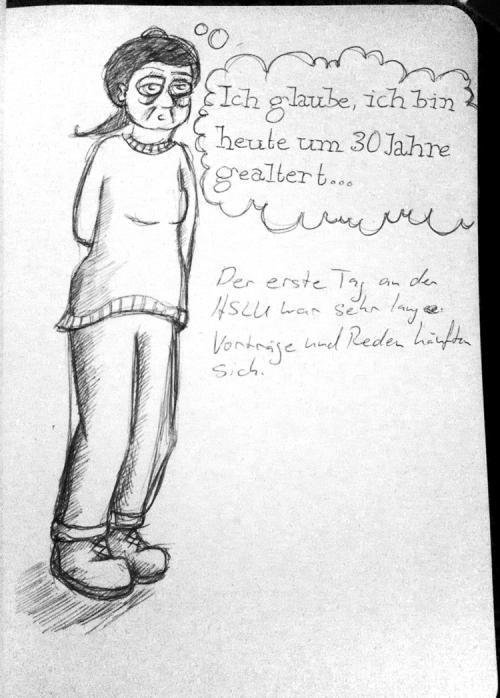 Ich glaube, ich bin
heute um 30 Jahre
gealtert...
Der erste Tag an der
HSLU war sehr lang
Vorträge und Reden häuften
sich.